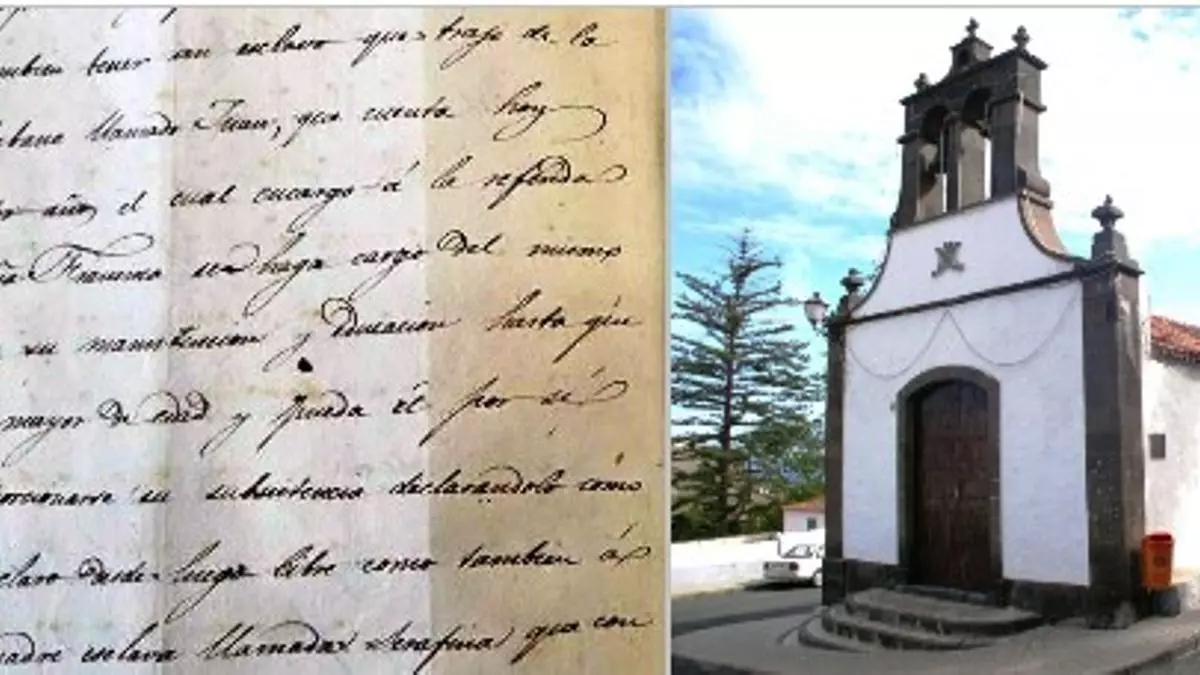 mbien tener un esclavo que traje de la
abana llamado Juan, que cuenta hoy
años el cual encargo á la referida
ña Francisca se haga cargo del mismo
su manutencion y Educacion hasta que
mayor de edad y pueda él por sí
porcionarse su subsistencia declarandolo cómo
claro desde luego libre como tambien á
madre esclava llamada Serafina que con